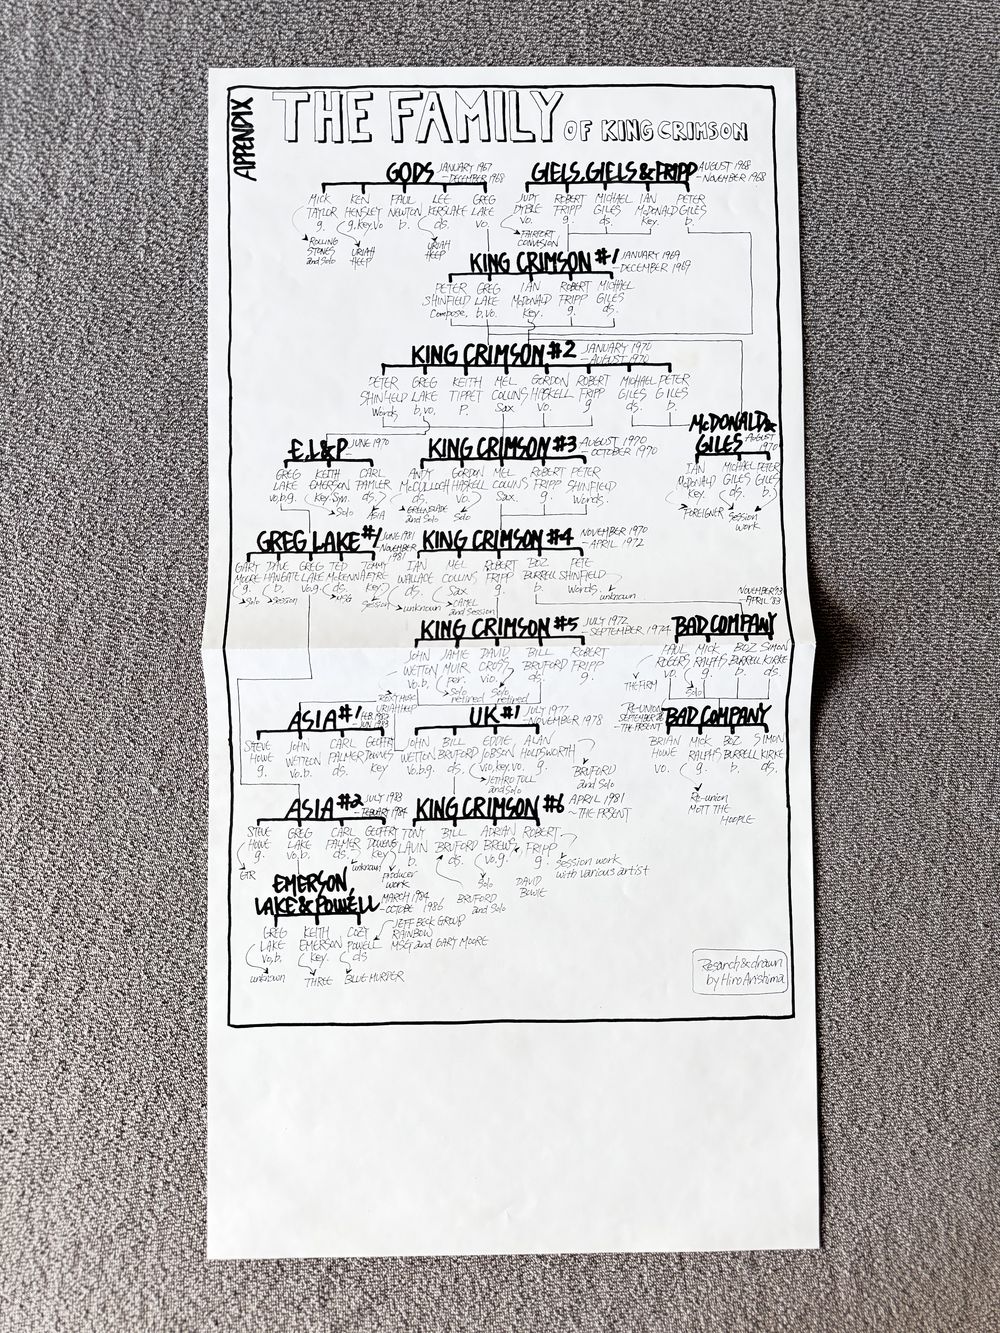 APPENDIX
THE FAMILY OF KING CRIMSON
GODS JANUARY 1967
-DECEMBER 1968
MICK KEN PAUL LEE GREG
TAYLOR HENSLEY NEWTON KERSLAKE LAKE
g. g.key.vo b. ds. vo.
ROLLING STONES and Solo
URIAH HEEP
URIAH HEEP
GIELS, GIELS & FRIPP AUGUST 1968
-NOVEMBER 1968
JUDY ROBERT MICHAEL IAN PETER
DYBLE FRIPP GILES McDONALD GILES
vo. g. ds. key. b.
FAIRPORT CONVENSION
KING CRIMSON #1 JANUARY 1969
-DECEMBER 1969
PETER GREG IAN ROBERT MICHAEL
SHINFIELD LAKE McDONALD FRIPP GILES
Compose. b,vo. key. g. ds.
KING CRIMSON #2 JANUARY 1970
-AUGUST 1970
PETER GREG KEITH MEL GORDON ROBERT MICHAEL PETER
SHINFIELD LAKE TIPPET COLLINS HASKELL FRIPP GILES GILES
Words b,vo. P. Sax vo. g ds. b.
E,L&P JUNE 1970
GREG KEITH CARL
LAKE EMERSON PAMLER
vo,b,g. key.sm. ds.
Solo
ASIA
KING CRIMSON #3 AUGUST 1970
-OCTOBER 1970
ANDY GORDON MEL ROBERT PETER
McCULLOCH HASKELL COLLINS FRIPP SHINFIELD
ds. vo. Sax. g. Words.
GREENSLADE and Solo
Solo
McDONALD & GILES AUGUST 1970
IAN MICHAEL PETER
McDONALD GILES GILES
key. ds. b.
FOREIGNER
Session work
GREG LAKE #1 JUNE 1981
-NOVEMBER 1981
GARY DAVE GREG TED TOMMY
MOORE LAKE McKENNA EYRE
g. b. Vo.g. ds. key
Solo
Session
MSG
Session
KING CRIMSON #4 NOVEMBER 1970
-APRIL 1972
IAN MEL ROBERT BOZ PETE
WALLACE COLLINS FRIPP BURRELL SHINFIELD
ds. Sax g. b. Words.
unknown
CAMEL and Session
unknown
KING CRIMSON #5 JULY 1972
-SEPTEMBER 1974
JOHN JAMIE DAVID BILL ROBERT
WETTON MUIR CROSS BRUFORD FRIPP
Vo.b. per. vio. ds. g.
ROXY MUSIC
URIAH HEEP
Solo retired
Solo retired
NOVEMBER '73
-APRIL '83
BAD COMPANY
PAUL MICK BOZ SIMON
ROGERS RALPHS BURRELL KIRKE
vo. g. b. ds.
THE FIRM
Solo
ASIA #1 FEB. 1982
-JUN. 1983
STEVE JOHN CARL GEOFFRY
HOWE WETTON PALMER DOWNES
g. Vo.b. ds. key
UK #1 JULY 1977
-NOVEMBER 1978
JOHN BILL EDDIE ALAN
WETTON BRUFORD JOBSON HOLDSWORTH
Vo.b.g. ds. vio,key.vo. g.
JETHRO TULL and Solo
BRUFORD and Solo
RE-UNION
SEPTEMBER 86
-THE PRESENT
BAD COMPANY
BRIAN MICK BOZ SIMON
HOWE RALPHS BURRELL KIRKE
vo. g. b. ds.
Re-union
MOTT THE HOOPLE
ASIA #2 JULY 1983
-FEBUARY 1984
STEVE GREG CARL GEOFFRY
HOWE LAKE PALMER DOWENS
g. vo.b. ds. key
GTR
unknown
producer work
KING CRIMSON #6 APRIL 1981
~THE PRSENT
TONY BILL ADRIAN ROBERT
LAVIN BRUFORD BREWS FRIPP
b. ds. vo.g. g.
BRUFORD and Solo
Solo
DAVID BOWIE
Session work
with various artist
EMERSON,
LAKE & POWELL MARCH 1984
-OCTOBE 1986
GREG KEITH COZY
LAKE EMERSON POWELL
vo,b. key. ds
JEFF BECK GROUP
RAINBOW
MSG and GARY MOORE
unknown THREE BLUE MURPER
Resarch & drawn
by Hiro Arishima